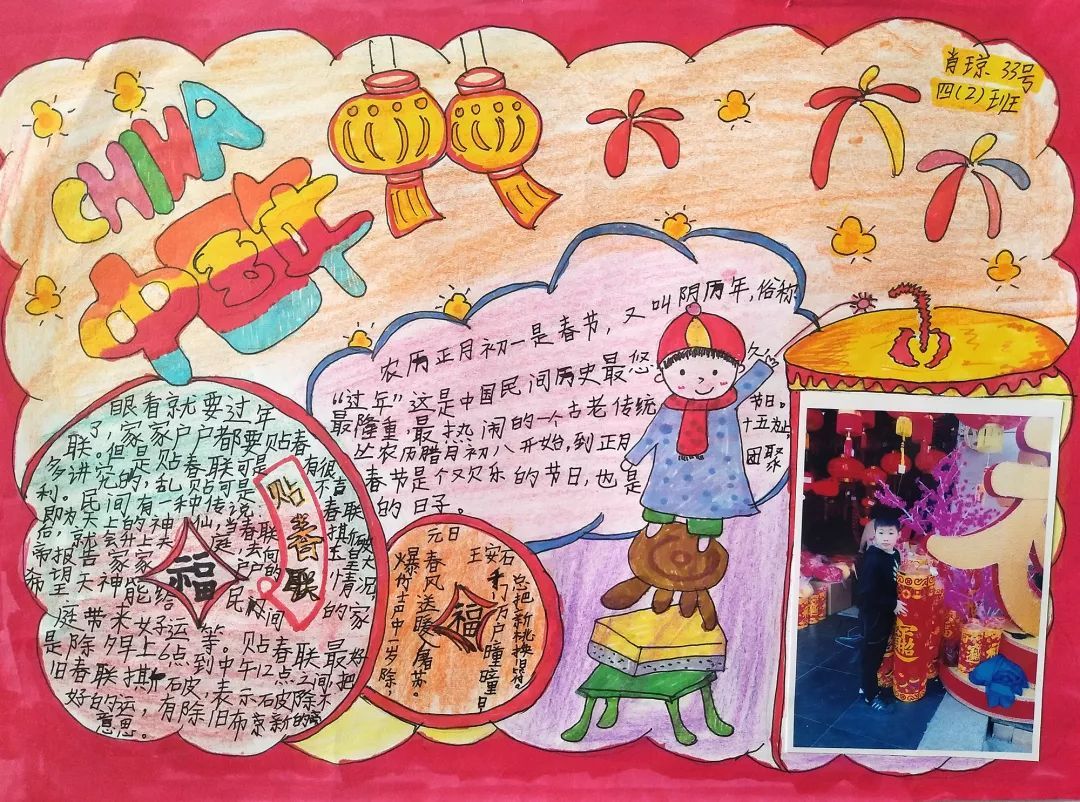 肖琼 33号
四(2)班
CHINA
中国年
农历正月初一是春节，又叫阴历年，俗称
“过年”这是中国民间历史最悠久、
最隆重，最热闹的一个古老传统节日。
从农历腊月初八开始，到正月十五为止，
春节是个欢乐的节日，也是团聚
的日子。
眼看就要过年
了，家家户户都要贴春
联。但是，贴春联可是有很
多讲究的，乱贴可是不吉
利。民间有一种传说：春联
即为天上的神仙，当春联撕破
帝报告家家户户的情况
希望天神能给民间的家
庭带来好运等。贴春联最好
是除夕早上6点到中午12点之间，把
旧春联撕破，表示破除不
好的运，有除旧布新的
意思。
贴春联
福
元日
王安石
爆竹声中一岁除，
春风送暖入屠苏。
千门万户曈曈日
总把新桃换旧符。
福